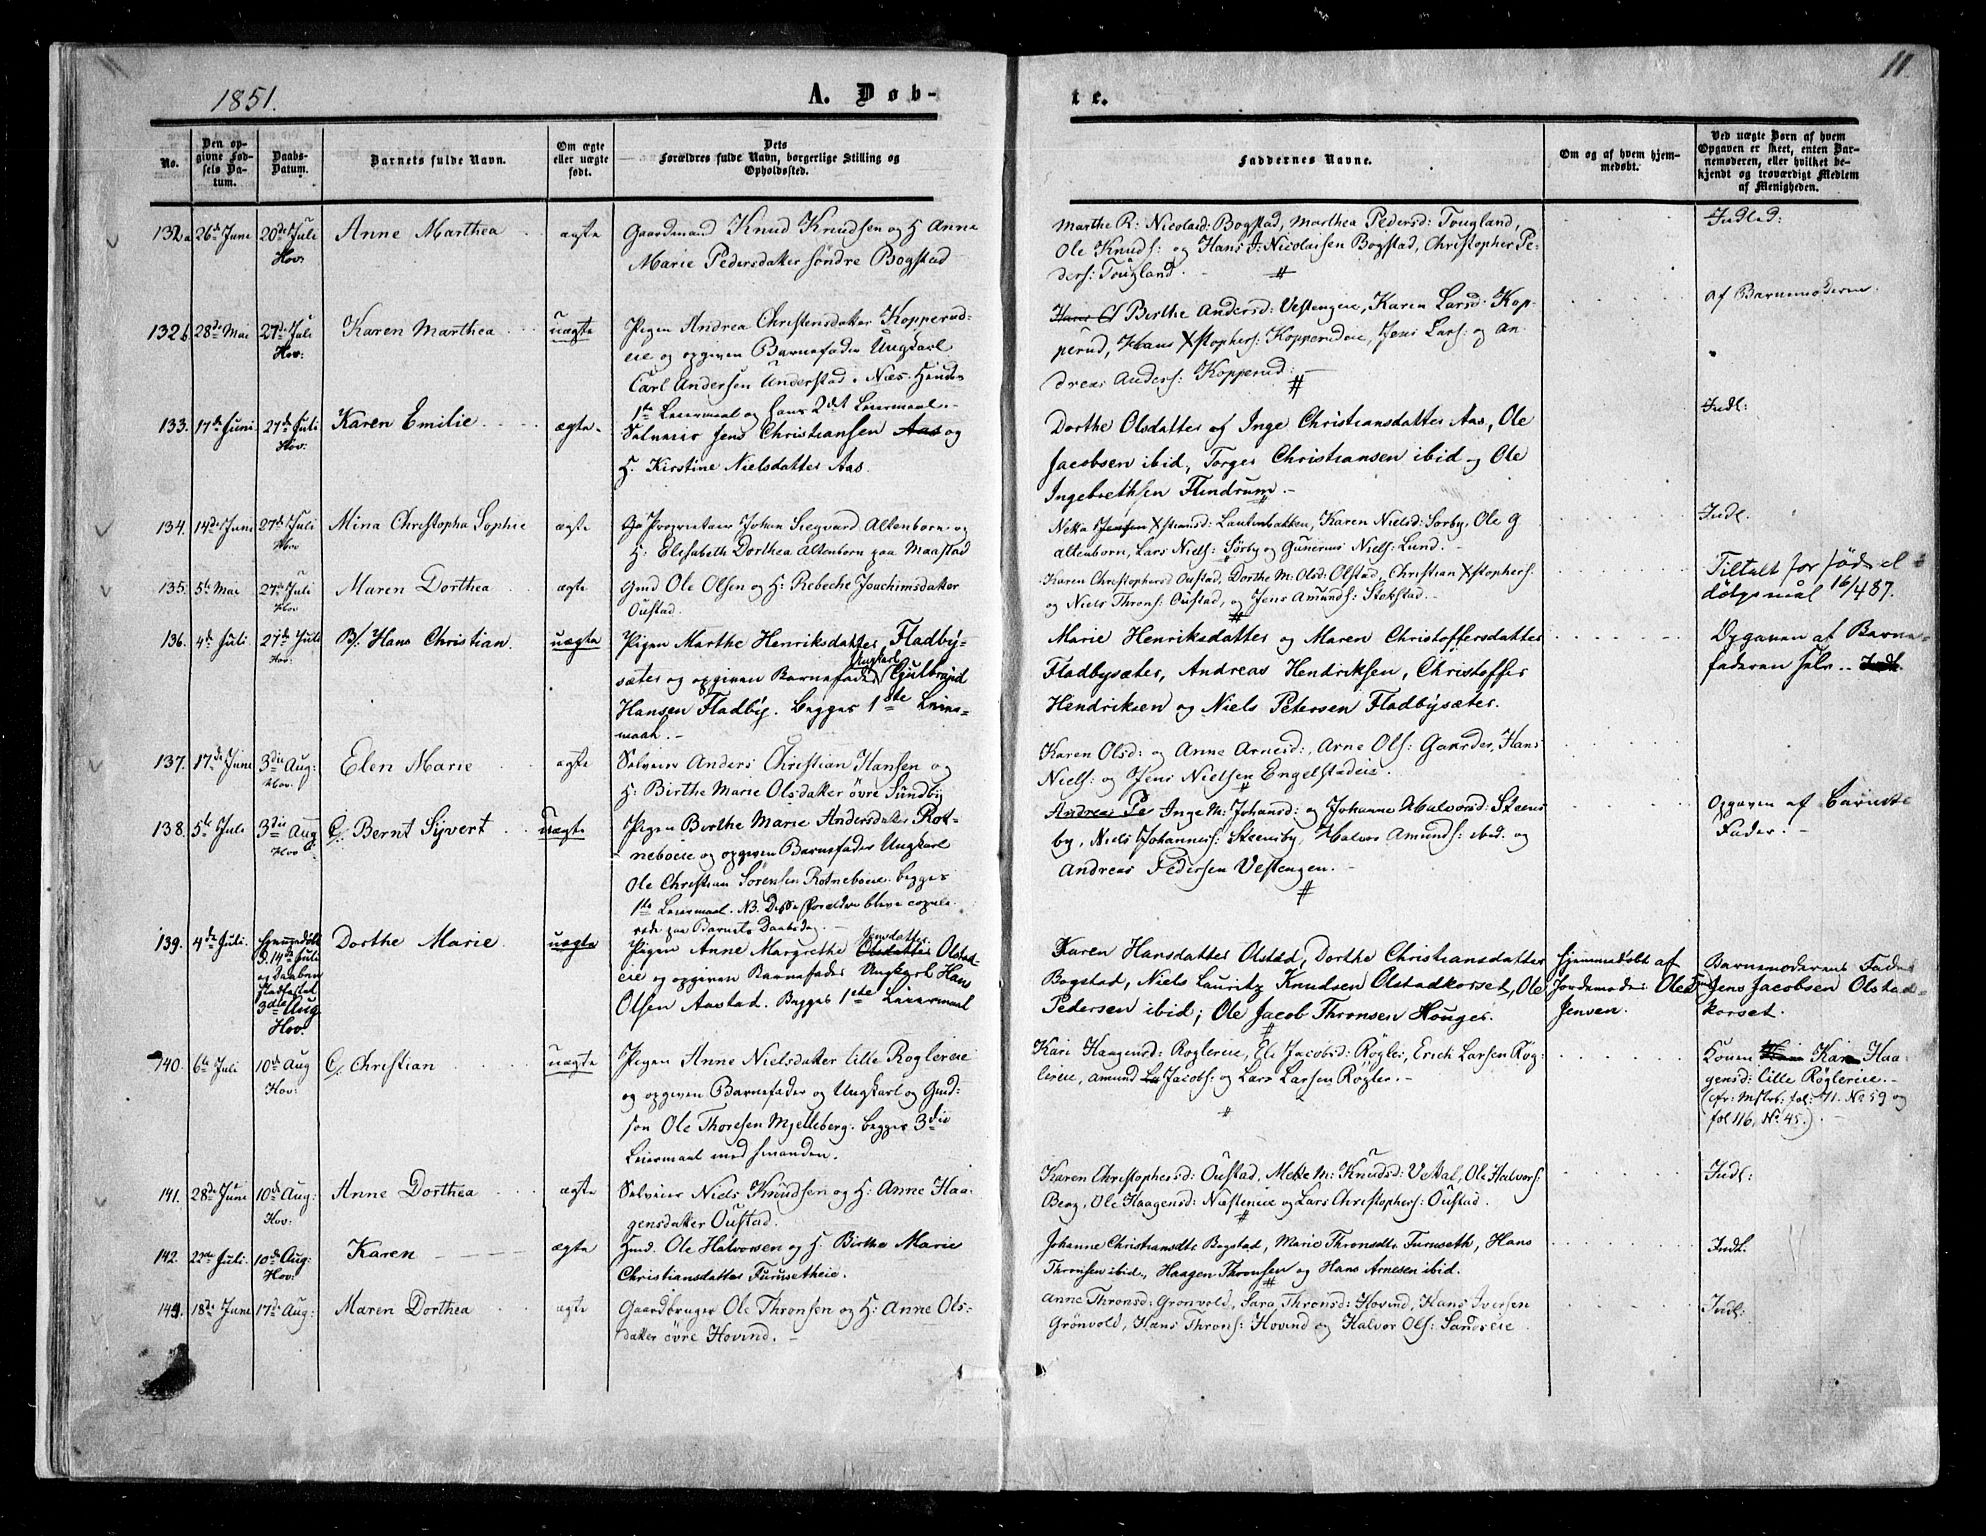 1851.
A. Døb-
te.
11.
No.
Den op-
givne Fød-
sels Da-
tum.
Daabs-
Datum.
Barnets fulde Navn.
Om ægte
eller uægte
født.
Dets
Forældres fulde Navn, borgerlige Stilling og
Opholdssted.
Faddernes Navne.
Om og af hvem hjem-
medøbt.
Ved uægte Børn af hvem
Opgaven er skeet, enten Bar-
nemoderen, eller hvilket be-
kjendt og troværdigt Medlem
af Menigheden.
132a 26de Juni 20de Juli Hov: Anne Marthea ægte
Gaardmand Knud Knudsen og H. Anne
Marie Pedersdatter søndre Bogstad
Marthe R: Nicolaid: Bogstad, Marthea Pedersd: Tougland,
Ole Knuds: og Hans J: Nicolaisen Bogstad, Christopher Pe-
ders: Tougland.
Indled:
132b 28de Mai 27de Juli Hov: Karen Marthea uægte
Pigen Andrea Christensdatter Kopperud-
eie og opgiven Barnefader Ungkarl
Carl Andersen Understad i Næs. Hendes
1ste Leiermaal og hans 2det Leiermaal.
Birthe Andersd: Vestengeie, Karen Larsd: Kop-
perud, Hans Xstophers: Kopperudeie, Jens Lars: og An-
dreas Anders: Kopperud:
af Barnemoderen
133. 17de Juni 27de Juli Hov. Karen Emilie ægte
Selveier Jens Christiansen Aas og
H. Kirstine Nielsdatter Aas.
Dorthe Olsdatter af Inge Christiansdatter Aas, Ole
Jacobsen ibid, Torger Christiansen ibid og Ole
Ingebrethsen Flindrum.
Indl:
134. 14de Juni 27de Juli Hov Mina Christopha Sophie ægte
Proprietair Johan Siegvard Altenborn og
H: Elisabeth Dorthea Altenborn paa Maastad
Netta Jensen Xstiansd: Lautenbakken, Karen Nielsd: Sørby, Ole G
Altenborn, Lars Niels: Sørby og Gunerius Niels: Lund.
Indl.
135. 5te Mai 27de Juli Hov Maren Dorthea ægte
Gmd Ole Olsen og H: Rebeche Joachimsdatter
Oustad.
Karen Christophersd Oustad, Dorthe M: Olsd: Olstad, Christian Xstophers:
og Niels Throns: Oustad, og Jens Amunds: Stokstad.
Tiltalt for føds el
dølgsmål 16/4 87.
136. 4de Juli 27de Juli Hov: B/. Hans Christian. uægte
Pigen Marthe Henriksdatter Fladby-
sæter og opgiven Barnefader Ungkarl Gulbrand
Hansen Fladby. Begges 1ste Leier-
maal.
Marie Henriksdatter og Maren Christoffersdatter
Fladbysæter, Andreas Hendriksen, Christoffer
Hendriksen og Niels Petersen Fladbysæter.
Opgaven af Barne-
faderen selv. Indl.
137. 17de Juni 3die Aug: Hov. Elen Marie ægte
Selveier Anders Christian Hansen og
H: Birthe Marie Olsdatter øvre Sundby
Karen Olsd: og Anne Arnesd:, Arne Ols: Gaarder, Hans
Niels: og Jens Nielsen Engelstadeie.
138. 5te Juli 3die Aug Hov C/. Bernt Syvert uægte
Pigen Berthe Marie Andersdatter Rot-
neboeie og opgiven Barnefader Ungkarl
Ole Christian Sørensen Rotneboeie. Begges
1ste Leiermaal. NB. Disse Forældre bleve copule-
rede paa Barnets Daabsdag.
Andreas Pe Inge M: Johansd: og Johanne Halvorsd: Steens-
by, Niels Johannes: Steensby, Halvor Amunds: ibid. og
Andreas Pedersen Vestengen.
Opgaven af Barnets
Fader.
139. 4de Juli. Hjemmedøbt d. 14de Juli og Daaben stadfæstet 3die Aug Hov. Dorthe Marie uægte
Pigen Anne Margrethe Jensdatter Olsdatter Olstad-
eie og opgiven Barnefader Ungkarl Hans
Olsen Aastad. Begges 1ste Leiermaal
Karen Hansdatter Olstad, Dorthe Christiansdatter
Bogstad, Niels Lauritz Knudsen Olstadkorset, Ole
Pedersen ibid; Ole Jacob Thronsen Houger.
Hjemmedøbt af
Jordemoder Olea
Jensen.
Barnemoderens Fader
Jens Jacobsen Olstad-
korset.
140. 6te Juli 10de Aug Hov: C/. Christian uægte
Pigen Anne Nielsdatter lille Roglereie
og opgiven Barnefader og Ungkarl og Gmd:
søn Ole Thoresen Mjelleberg. Begges 3die
Leiermaal med hinanden.
Kari Haagensd: Roglereie, Eli Jacobsd: Røgler, Erich Larsen Røg-
lereie, Amund La Jacobs: og Lars Larsen Røgler.
Konen Kari Haa-
gensd: lille Røglereie.
(cfr: Mstrb: fol: 71. No 59 og
fol 116, No 45.)
141. 28de Juni 10de Aug: Hov: Anne Dorthea ægte
Selveier Niels Knudsen og H: Anne Haa-
gensdatter Oustad.
Karen Christophersd: Oustad, Mette M: Knudsd: Vestal, Ole Halvors:
Berg, Ole Haagensd: Næsteneie og Lars Christophers: Oustad.
Indl:
142. 22de Juli. 10de Aug: Hov: Karen ægte
Hmd. Ole Halvorsen og H. Birthe Marie
Christiansdatter Furusetheie.
Johanne Christiansdtr Bogstad, Marie Thronsdtr Furuseth, Hans
Thronsen ibid., Haagen Thronsen og Hans Arnesen ibid.
Indl.
143. 18de Juni 17de Aug: Maren Dorthea ægte
Gaardbruger Ole Thronsen og H: Anne Ols-
datter øvre Hovind.
Anne Thronsd: Grønvold, Sara Thronsd: Hovind, Hans Iversen
Grønvold, Hans Throns: Hovind og Halvor Ols: Sandseie
Indl: